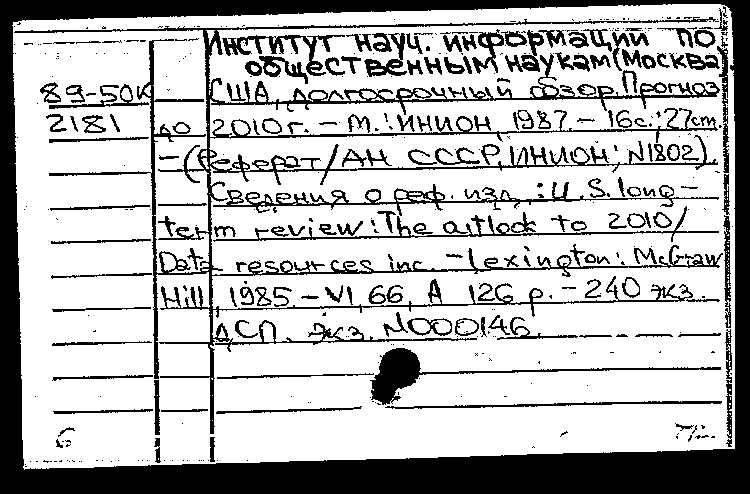 Институт науч. информации по
общественным наукам (Москва).
89-50К США, долгосрочный обзор. Прогноз
2181 до 2010 г. – М.: ИНИОН, 1987. – 16 с.; 27 cm.
– (Реферат/АН СССР, ИНИОН; N1802).
Сведения о реф. изд.: U.S. long-
term review: The outlook to 2010/
Data resources inc. – Lexington: McGraw
Hill, 1985. – VI, 66, A 126 p. – 240 экз.
ДСП. экз. N000146.
6